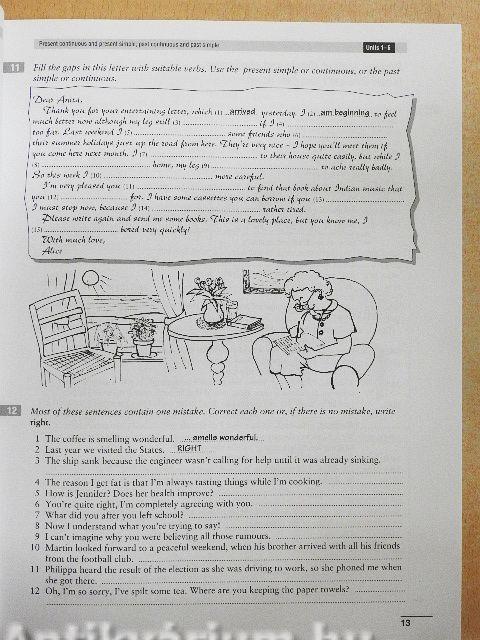 Present continuous and present simple; past continuous and past simple
Units 1–6
11 Fill the gaps in this letter with suitable verbs. Use the present simple or continuous, or the past
simple or continuous.
Dear Anita,
Thank you for your entertaining letter, which (1) ...arrived... yesterday. I (2) ...am beginning... to feel
much better now although my leg still (3) .................... if I (4) ....................
too far. Last weekend I (5) .................... some friends who (6) ....................
their summer holidays just up the road from here. They're very nice – I hope you'll meet them if
you come here next month. I (7) .................... to their house quite easily, but while I
(8) .................... home, my leg (9) .................... to ache really badly.
So this week I (10) .................... more careful.
I'm very pleased you (11) .................... to find that book about Indian music that
you (12) .................... for. I have some cassettes you can borrow if you (13) ....................
I must stop now, because I (14) .................... rather tired.
Please write again and send me some books. This is a lovely place, but you know me, I
(15) .................... bored very quickly!
With much love,
Alice
12 Most of these sentences contain one mistake. Correct each one or, if there is no mistake, write
right.
1 The coffee is smelling wonderful. ...smells wonderful...
2 Last year we visited the States. ...RIGHT...
3 The ship sank because the engineer wasn't calling for help until it was already sinking.
4 The reason I get fat is that I'm always tasting things while I'm cooking. ....................
5 How is Jennifer? Does her health improve? ....................
6 You're quite right, I'm completely agreeing with you. ....................
7 What did you after you left school? ....................
8 Now I understand what you're trying to say! ....................
9 I can't imagine why you were believing all those rumours. ....................
10 Martin looked forward to a peaceful weekend, when his brother arrived with all his friends
from the football club. ....................
11 Philippa heard the result of the election as she was driving to work, so she phoned me when
she got there. ....................
12 Oh, I'm so sorry, I've spilt some tea. Where are you keeping the paper towels? ....................
13